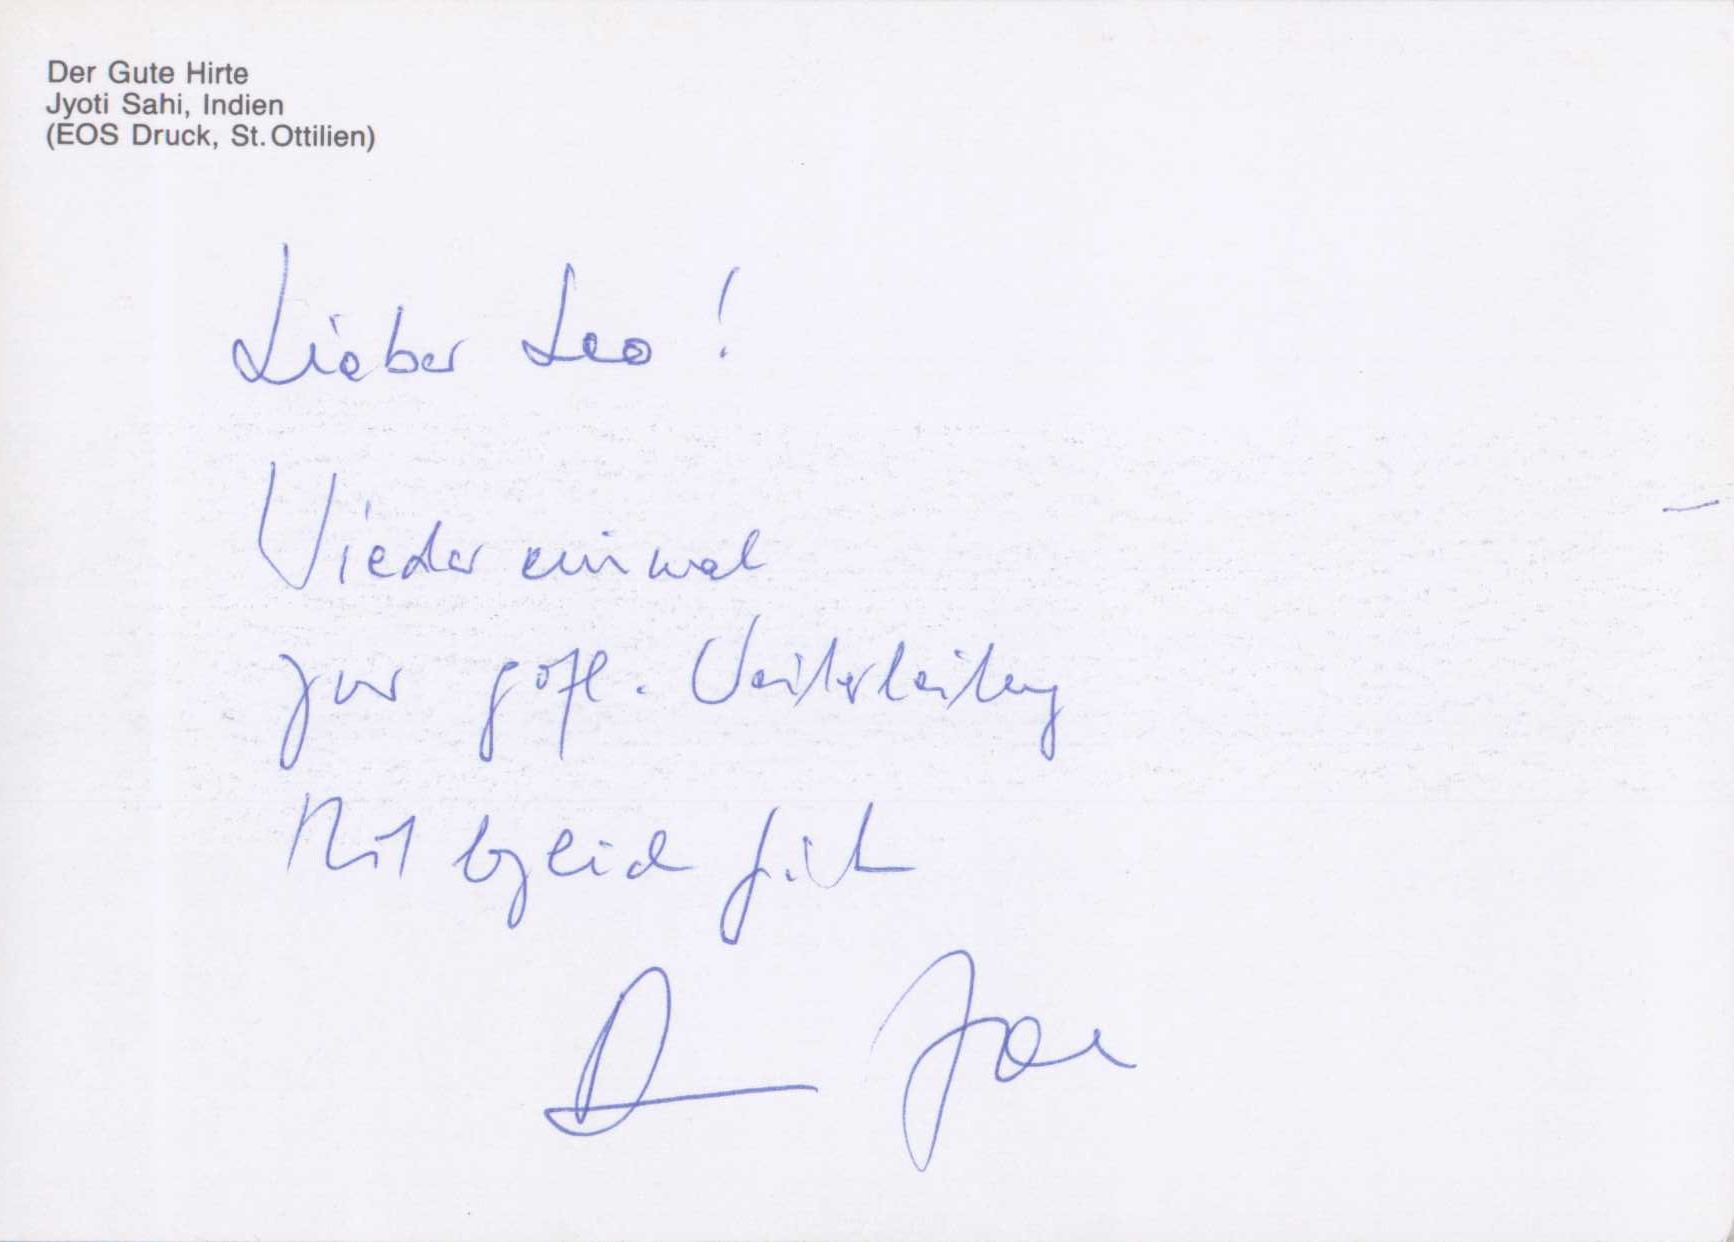 Der Gute Hirte
Jyoti Sahi, Indien
(EOS Druck, St. Ottilien)
Lieber Leo!
Wieder einmal
zur gefl. Weiterleitung
Mit
Dein